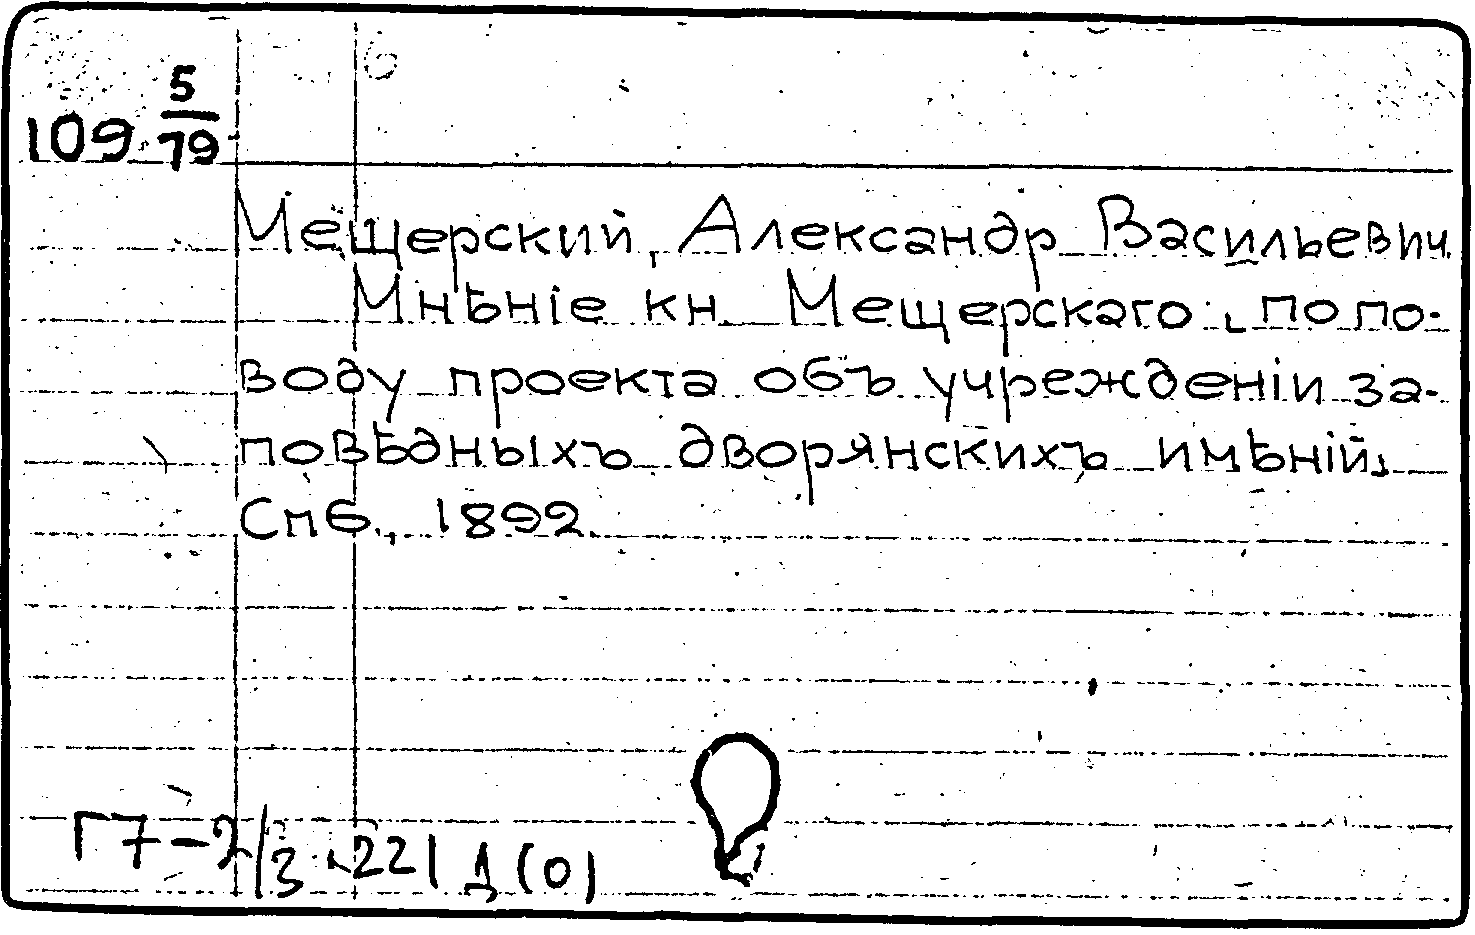 109 5/79
Мещерский, Александр Васильевич.
Мнѣніе кн. Мещерскаго по по-
воду проекта объ учрежденіи за-
повѣдныхъ дворянскихъ имѣній.
Спб., 1892.
Г7-2/3 221 Д(0)